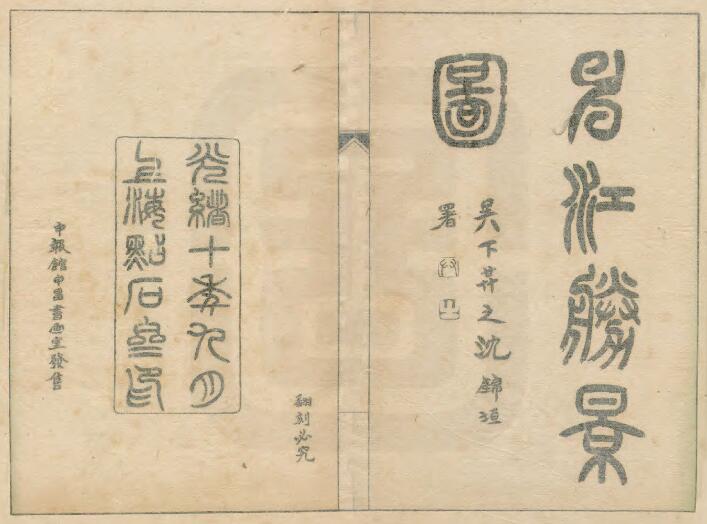 申江勝景
圖
吳下昇之沈錦垣
署
翻刻必究
光緒十年九月
上海點石齋印
申報館申昌書畫室發售